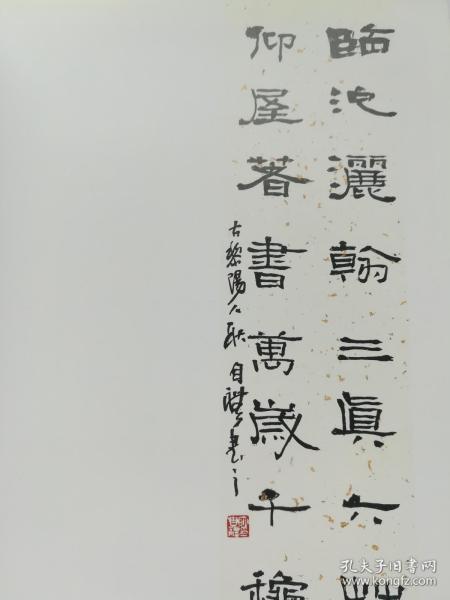 臨池灑翰三真六艸
仰屋著書萬歲千
古黎陽人耿自禮書之
孔夫子旧书网
www.kongfz.com